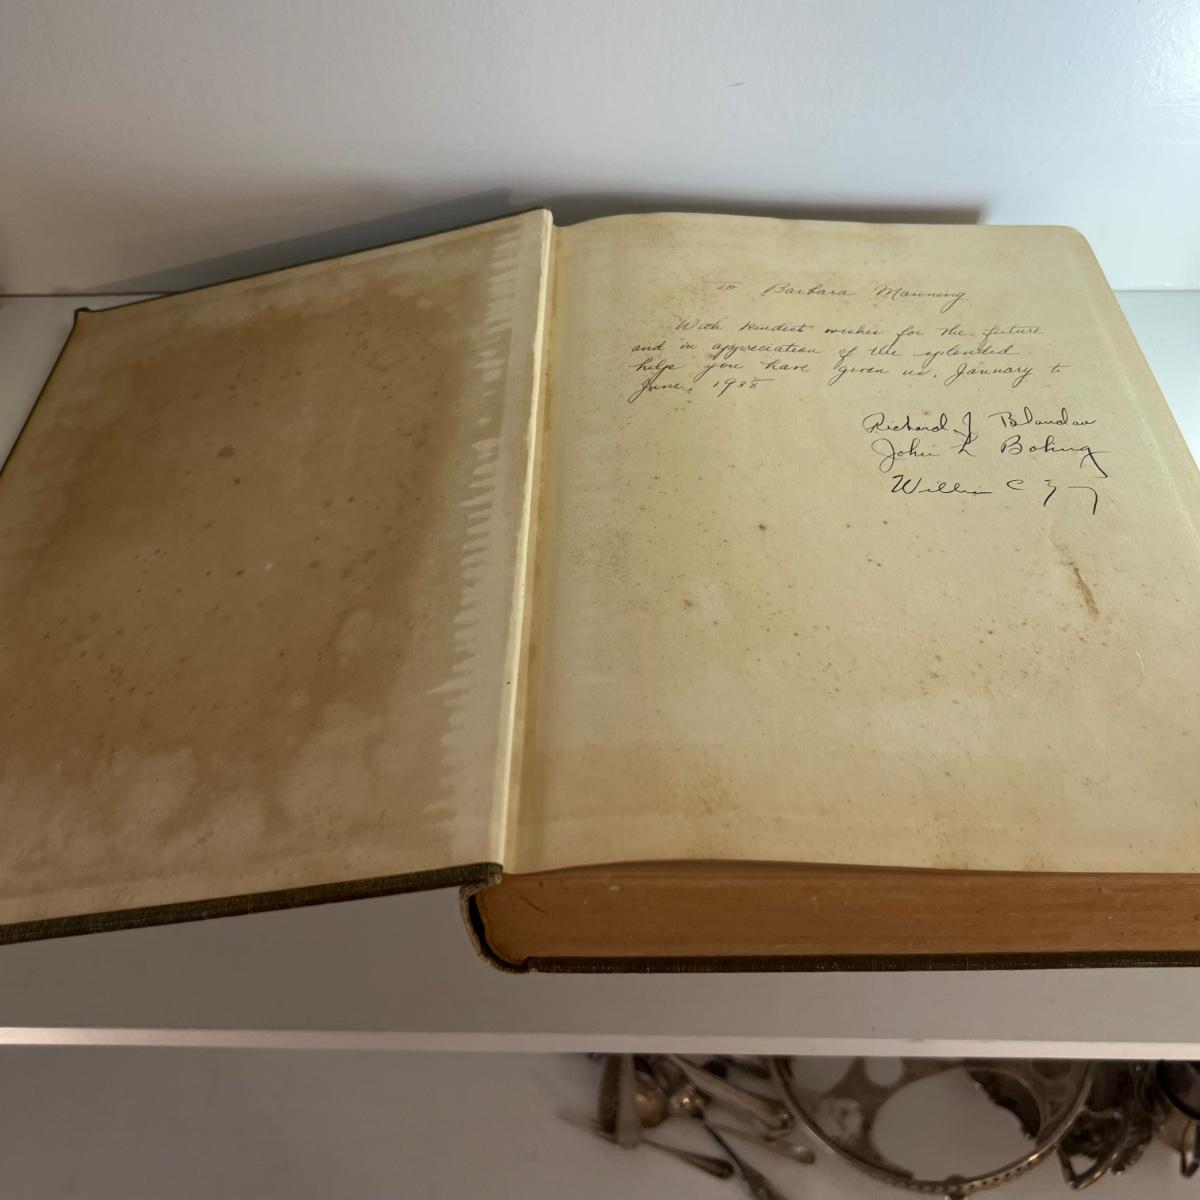 To Barbara Manning
With kindest wishes for the future
and in appreciation of the splendid
help you have given us, January to
June, 1938
Richard J Blandau
John L Boling
William C